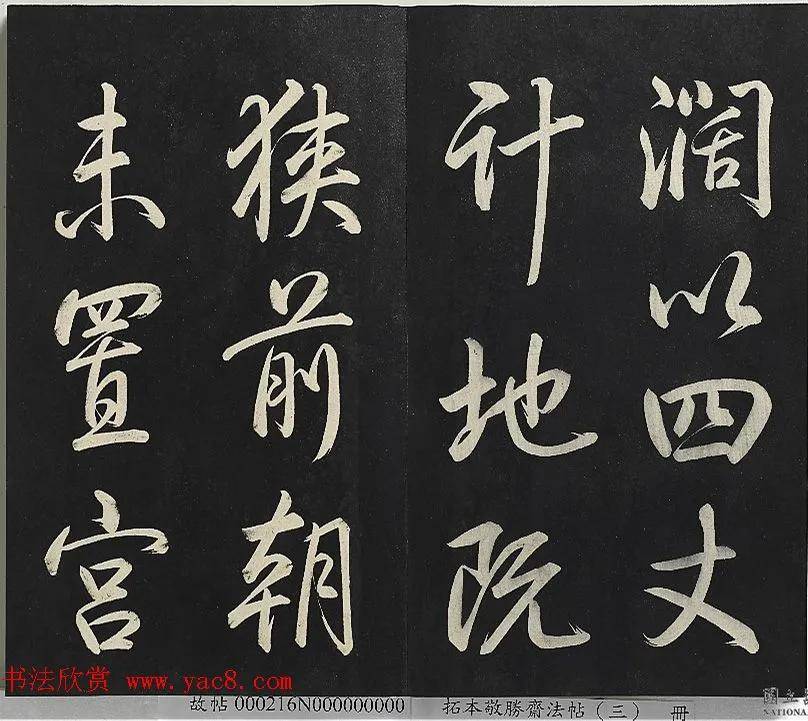 濶以四丈
计地阮
狭前朝
未置宫
书法欣赏 www.yac8.com
故帖 000216N000000000
拓本敬勝齋法帖（三） 冊
國立
NATIONA